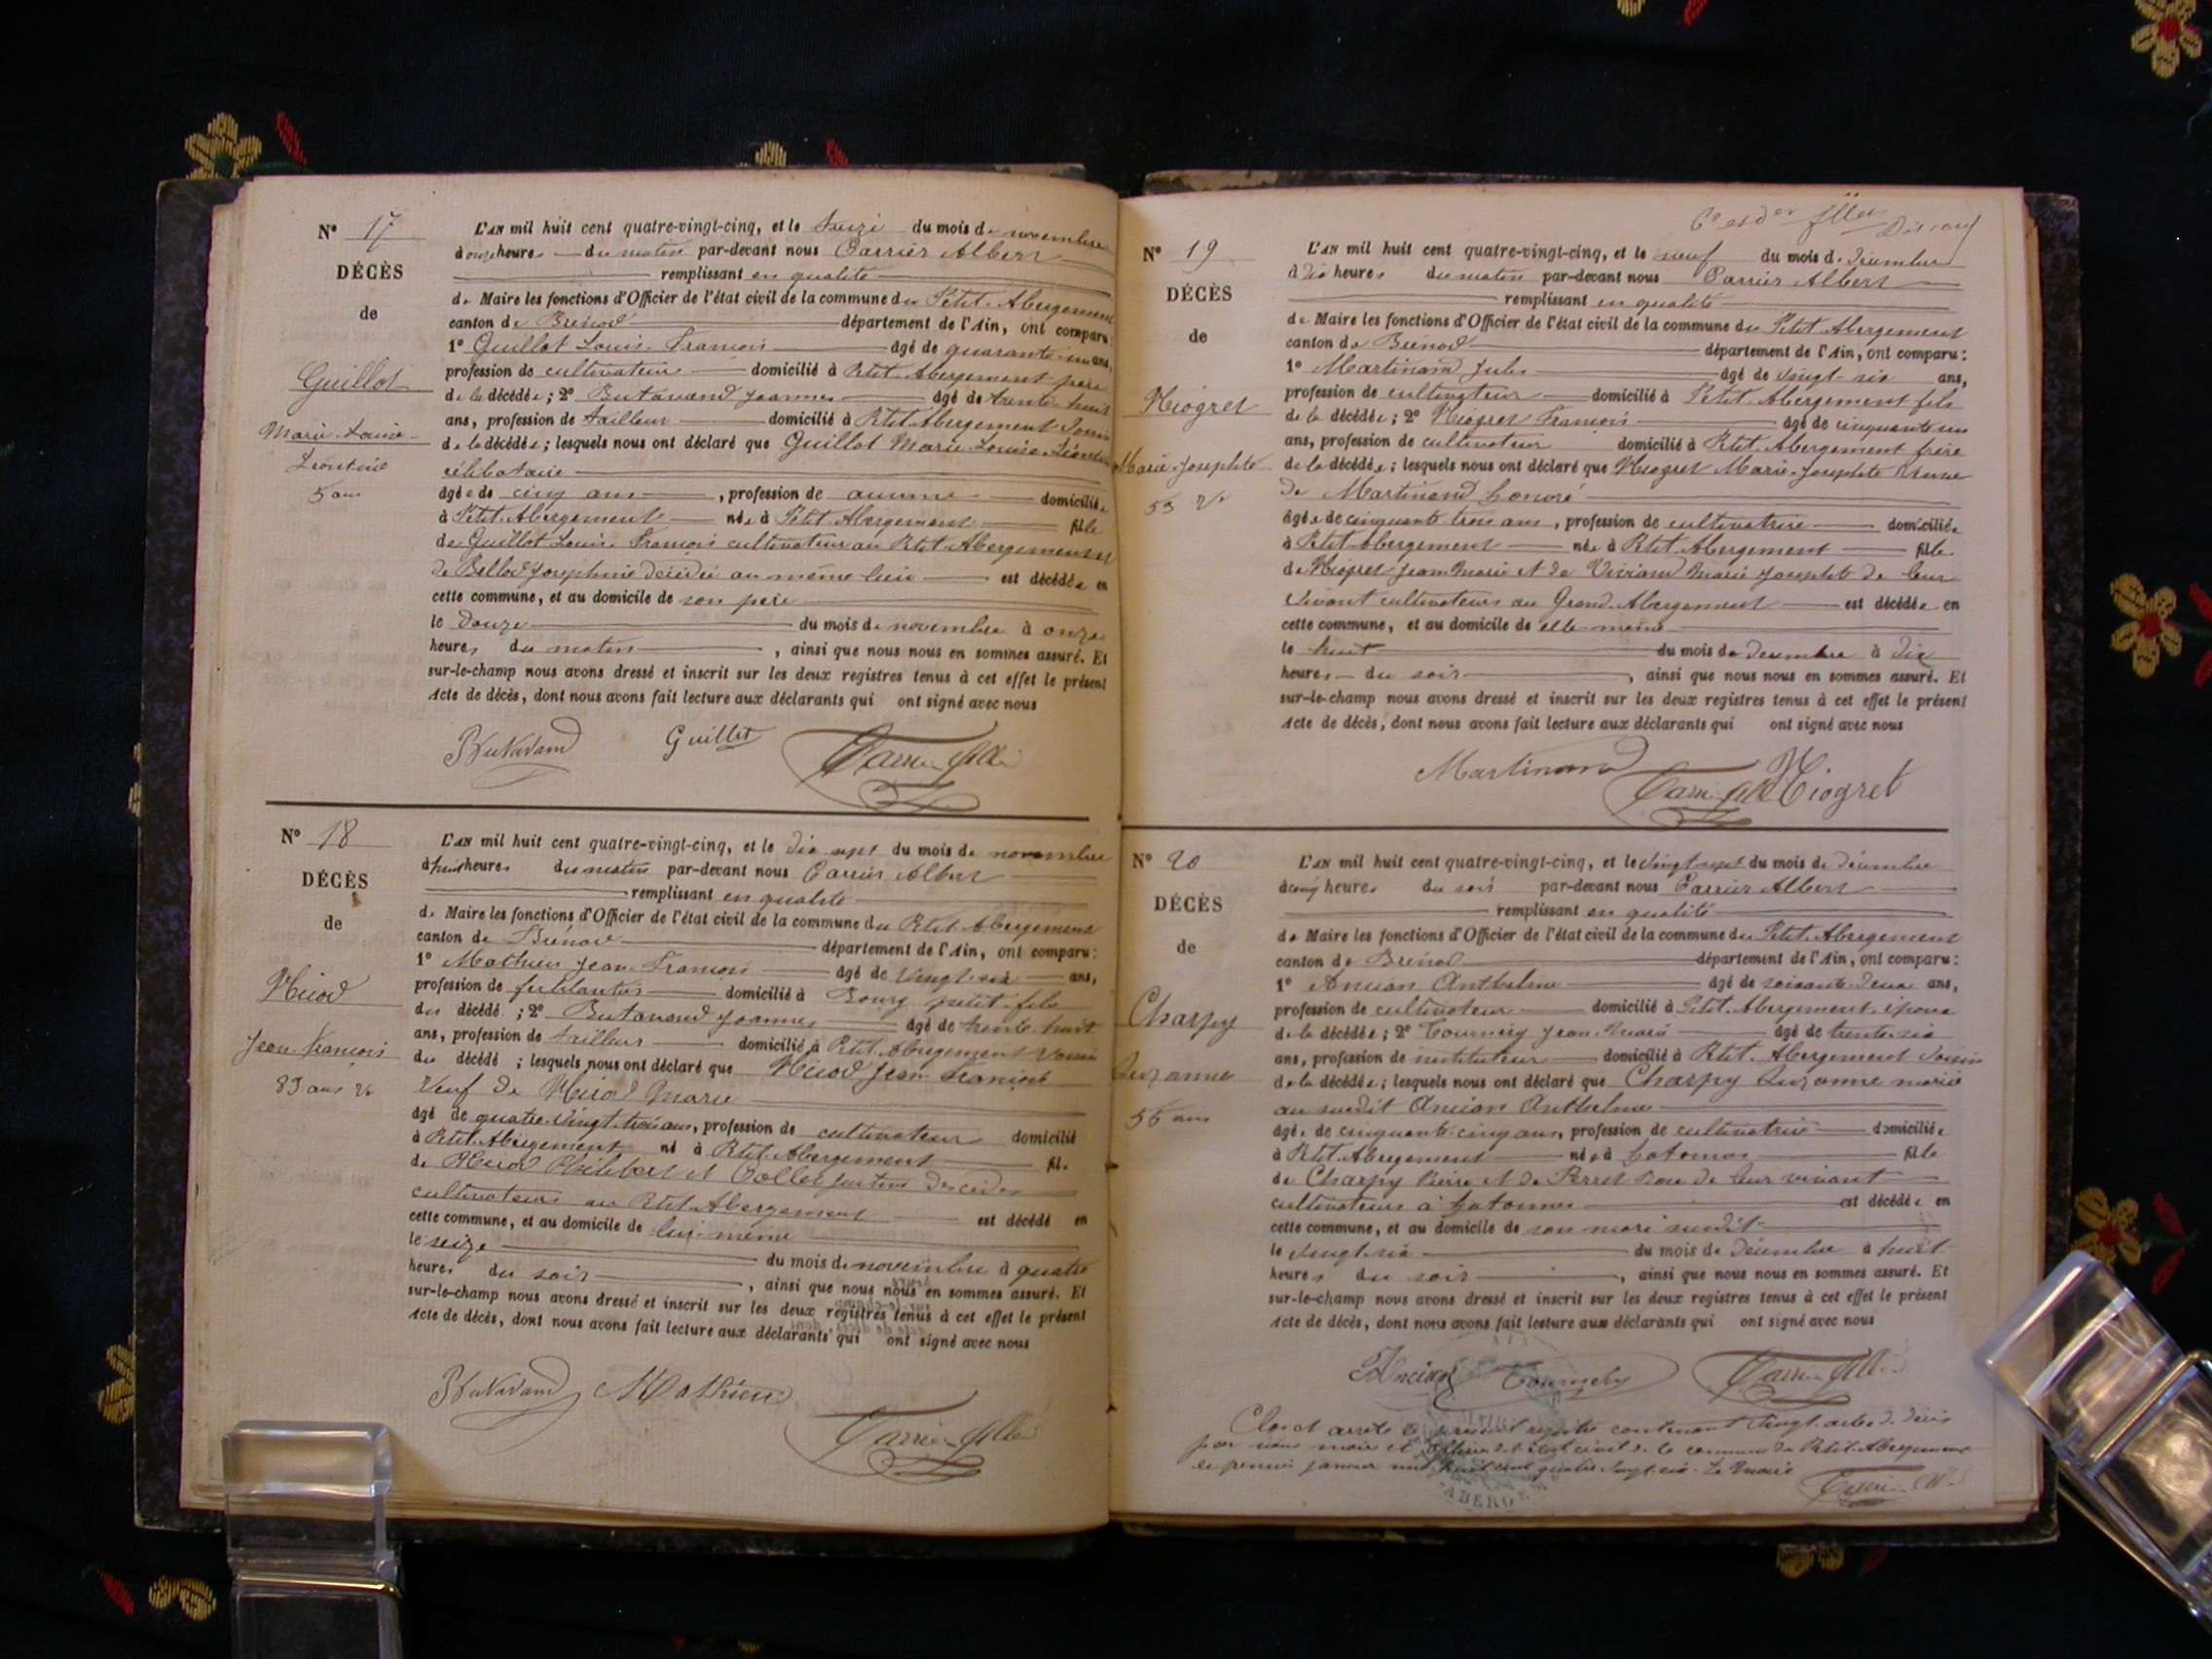 N° 17
DÉCÈS
de
Guillot
Marie Louise
Léontine
5 ans
L'AN mil huit cent quatre-vingt-cinq, et le treize du mois de novembre
à onze heures du matin par-devant nous Carrier Albert
remplissant en qualité
de Maire les fonctions d'Officier de l'état civil de la commune du Petit-Abergement
canton de Brénod département de l'Ain, ont comparu:
1° Guillot Louis François âgé de quarante un ans,
profession de cultivateur domicilié à Petit-Abergement père
de la décédée; 2° Butavand Joannes âgé de trente huit
ans, profession de tailleur domicilié à Petit Abergement voisin
de la décédée; lesquels nous ont déclaré que Guillot Marie Louise Léontine
célibataire
âgée de cinq ans, profession de aucune domiciliée
à Petit-Abergement née à Petit Abergement fille
de Guillot Louis François cultivateur au Petit Abergement et
de Bellod Joséphine décédée au même lieu est décédée en
cette commune, et au domicile de son père
le douze du mois de novembre à onze
heures du matin, ainsi que nous nous en sommes assuré. Et
sur-le-champ nous avons dressé et inscrit sur les deux registres tenus à cet effet le présent
Acte de décès, dont nous avons fait lecture aux déclarants qui ont signé avec nous
Butavand Guillot Carrier Alb
N° 18
DÉCÈS
de
Niod
Jean François
83 ans
L'AN mil huit cent quatre-vingt-cinq, et le dix sept du mois de novembre
à huit heures du matin par-devant nous Carrier Albert
remplissant en qualité
de Maire les fonctions d'Officier de l'état civil de la commune du Petit Abergement
canton de Brénod département de l'Ain, ont comparu:
1° Mathieu Jean François âgé de vingt-six ans,
profession de ferblantier domicilié à Bourg petit fils
du décédé; 2° Butavand Joannes âgé de trente huit
ans, profession de tailleur domicilié à Petit-Abergement voisin
du décédé; lesquels nous ont déclaré que Niod Jean François
veuf de Niod Marie
âgé de quatre vingt trois ans, profession de cultivateur domicilié
à Petit-Abergement né à Petit Abergement fils
de Niod Philibert et Collet décédés
cultivateurs au Petit-Abergement est décédé en
cette commune, et au domicile de lui-même
le seize du mois de novembre à quatre
heures du soir, ainsi que nous nous en sommes assuré. Et
sur-le-champ nous avons dressé et inscrit sur les deux registres tenus à cet effet le présent
Acte de décès, dont nous avons fait lecture aux déclarants qui ont signé avec nous
Butavand Mathieu
Carrier Alb
N° 19
DÉCÈS
de
Niogret
Marie Josephte
53
L'AN mil huit cent quatre-vingt-cinq, et le neuf du mois de décembre
à dix heures du matin par-devant nous Carrier Albert
remplissant en qualité
de Maire les fonctions d'Officier de l'état civil de la commune du Petit Abergement
canton de Brénod département de l'Ain, ont comparu:
1° Martinand Jules âgé de vingt-six ans,
profession de cultivateur domicilié à Petit-Abergement fils
de la décédée; 2° Niogret François âgé de cinquante un
ans, profession de cultivateur domicilié à Petit-Abergement frère
de la décédée; lesquels nous ont déclaré que Niogret Marie-Josephte veuve
de Martinand honoré
âgée de cinquante trois ans, profession de cultivatrice domiciliée
à Petit-Abergement née à Petit Abergement fille
de Niogret Jean Marie et de Viviand Marie Josephte de leur
vivant cultivateurs au Grand-Abergement est décédée en
cette commune, et au domicile de elle même
le huit du mois de décembre à dix
heures du soir, ainsi que nous nous en sommes assuré. Et
sur-le-champ nous avons dressé et inscrit sur les deux registres tenus à cet effet le présent
Acte de décès, dont nous avons fait lecture aux déclarants qui ont signé avec nous
Martinand Carrier Alb Niogret
N° 20
DÉCÈS
de
Charpy
Suzanne
55 ans
L'AN mil huit cent quatre-vingt-cinq, et le vingt sept du mois de décembre
à cinq heures du soir par-devant nous Carrier Albert
remplissant en qualité
de Maire les fonctions d'Officier de l'état civil de la commune du Petit-Abergement
canton de Brénod département de l'Ain, ont comparu:
1° Ancian Anthelme âgé de soixante deux ans,
profession de cultivateur domicilié à Petit-Abergement époux
de la décédée; 2° Tournery Jean Marie âgé de trente-six
ans, profession de instituteur domicilié à Petit-Abergement voisin
de la décédée; lesquels nous ont déclaré que Charpy Suzanne mariée
au susdit Ancian Anthelme
âgée de cinquante-cinq ans, profession de cultivatrice domiciliée
à Petit-Abergement née à hotonnes fille
de Charpy Pierre et de Perret de leur vivant
cultivateurs à hotonnes est décédée en
cette commune, et au domicile de son mari susdit
le vingt-six du mois de décembre à huit
heures du soir, ainsi que nous nous en sommes assuré. Et
sur-le-champ nous avons dressé et inscrit sur les deux registres tenus à cet effet le présent
Acte de décès, dont nous avons fait lecture aux déclarants qui ont signé avec nous
Ancian Tournery Carrier Alb
Clos et arrêté le présent registre contenant vingt actes de décès
par nous maire et officier de l'état civil de la commune du Petit-Abergement
le premier janvier mil huit cent quatre vingt-six. Le Maire
Carrier Alb